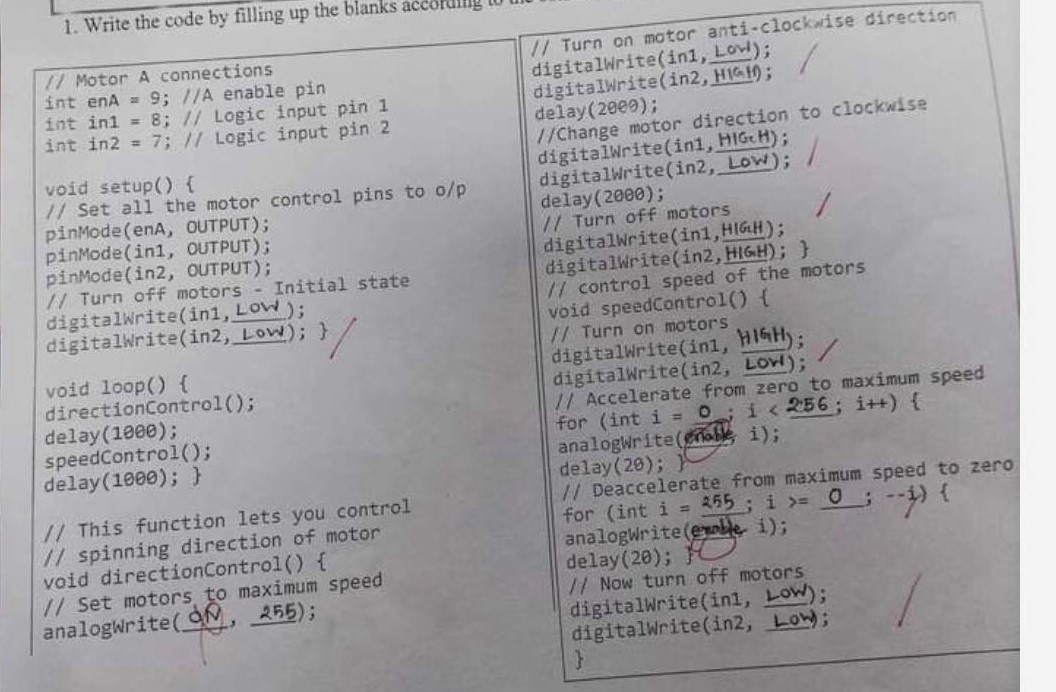 1. Write the code by filling up the blanks according to the
// Motor A connections
int enA = 9; //A enable pin
int in1 = 8; // Logic input pin 1
int in2 = 7; // Logic input pin 2
void setup() {
// Set all the motor control pins to o/p
pinMode(enA, OUTPUT);
pinMode(in1, OUTPUT);
pinMode(in2, OUTPUT);
// Turn off motors - Initial state
digitalWrite(in1, LOW);
digitalWrite(in2, LOW); }
void loop() {
directionControl();
delay(1000);
speedControl();
delay(1000); }
// This function lets you control
// spinning direction of motor
void directionControl() {
// Set motors to maximum speed
analogWrite( ON, 255);
// Turn on motor anti-clockwise direction
digitalWrite(in1, LOW);
digitalWrite(in2, HIGH);
delay(2000);
//Change motor direction to clockwise
digitalWrite(in1, HIGH);
digitalWrite(in2, LOW);
delay(2000);
// Turn off motors
digitalWrite(in1,HIGH);
digitalWrite(in2,HIGH); }
// control speed of the motors
void speedControl() {
// Turn on motors
digitalWrite(in1, HIGH);
digitalWrite(in2, LOW);
// Accelerate from zero to maximum speed
for (int i = 0 ; i < 256; i++) {
analogWrite(enable, i);
delay(20); }
// Deaccelerate from maximum speed to zero
for (int i = 255 ; i >= 0 ; --i) {
analogWrite(enable, i);
delay(20); }
// Now turn off motors
digitalWrite(in1, LOW);
digitalWrite(in2, LOW);
}